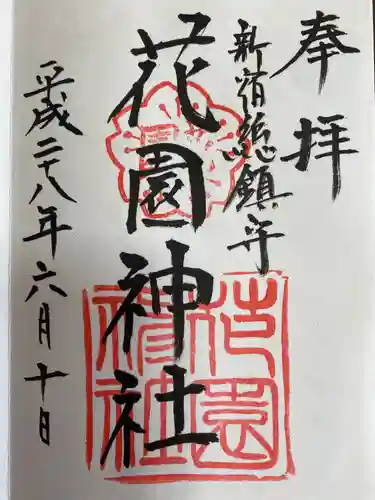 奉拝
新宿総鎮守
花園神社
花園神社
平成二十八年六月十日